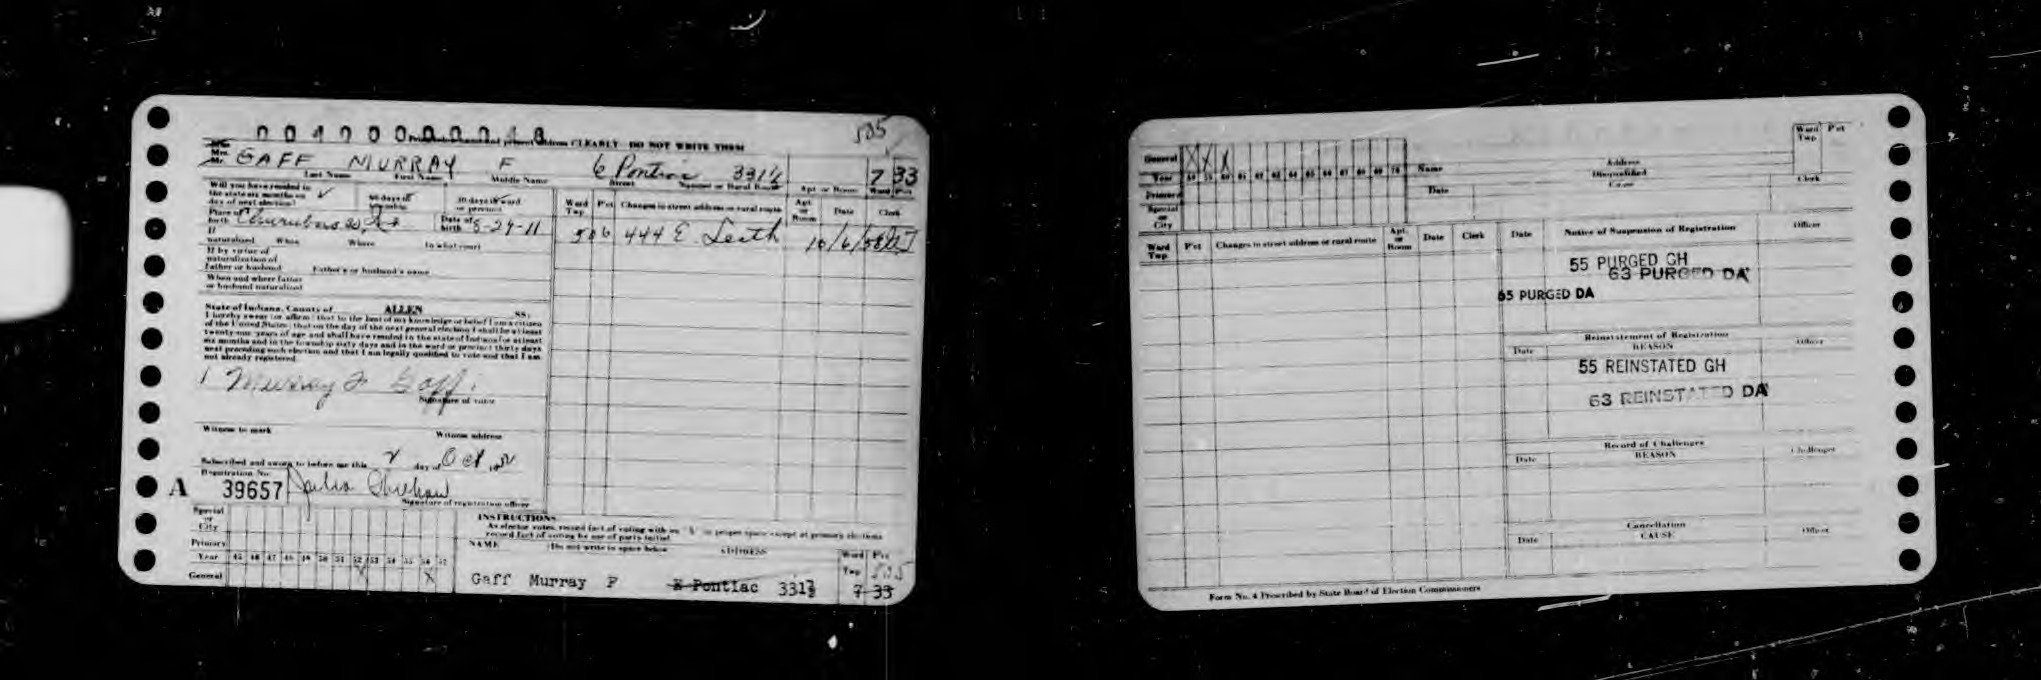 505
address CLEARLY DO NOT WRITE THEM
Mrs.
Mr. GAFF MURRAY F E Pontiac 331½ 7 33
Last Name First Name Middle Name Street Number or Rural Route Apt. or Room Ward Pct
Will you have resided in
the state six months on
day of next election? ✓
60 days in
township
30 days in ward
or precinct
Place of
birth Churubusco Ind
Date of
birth 5-29-11
If
naturalized When Where In what court
If by virtue of
naturalization of
Father or husband Father's or husband's name
When and where father
or husband naturalized
Ward
Twp. Pct Changes in street address or rural route Apt.
or
Room Date Clerk
506 444 E Leith 10/6/58
State of Indiana, County of ALLEN SS:
I hereby swear (or affirm) that to the best of my knowledge or belief I am a citizen
of the United States; that on the day of the next general election I shall be at least
twenty-one years of age and shall have resided in the state of Indiana for at least
six months and in the township sixty days and in the ward or precinct thirty days
next preceding such election and that I am legally qualified to vote and that I am
not already registered.
Murray F Gaff
Signature of voter
Witness to mark Witness address
Subscribed and sworn to before me this 2 day of Oct 1952
Registration No.
A 39657 Julia
Signature of registration officer
Special
or
City
Primary
Year 45 46 47 48 49 50 51 52 53 54 55 56 57
General X
INSTRUCTIONS
As elector votes, record fact of voting with an "X" in proper space except at primary elections
record fact of voting by use of party initial
NAME (Do not write in space below) ADDRESS Ward Pct
Twp 505
Gaff Murray F E Pontiac 331½ 7 33
General X X X
Year 58 59 60 61 62 63 64 65 66 67 68 69 70
Primary
Special
or
City
Name Address
Disqualified
Date Cause Clerk
Ward
Twp. Pct
Ward
Twp. Pct Changes in street address or rural route Apt.
or
Room Date Clerk
Date Notice of Suspension of Registration Officer
55 PURGED GH
63 PURGED DA
65 PURGED DA
Reinstatement of Registration
Date REASON Officer
55 REINSTATED GH
63 REINSTATED DA
Record of Challenges
Date REASON Challenger
Cancellation
Date CAUSE Officer
Form No. 4 Prescribed by State Board of Election Commissioners